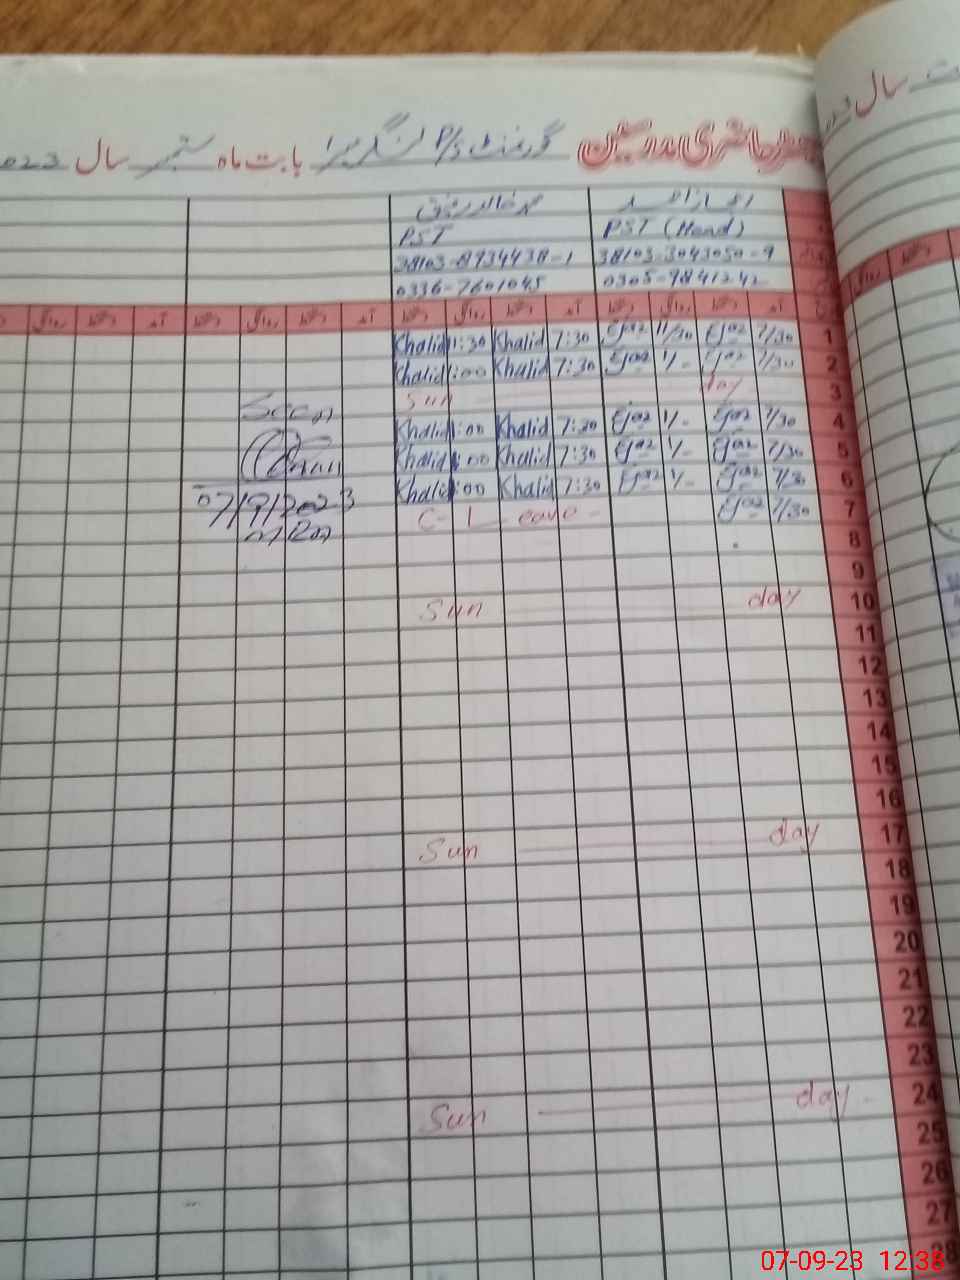 رجسٹر حاضری مدرسین گورنمنٹ P/S بابت ماہ ستمبر سال 2023
سال
اعجاز احمد محمد خالد رفیق
PST (Head) PST
38103-3043050-9 38103-8934438-1
0305-9841242 0336-7601045
آمد دستخط روانگی دستخط آمد دستخط روانگی دستخط آمد دستخط روانگی دستخط آمد دستخط روانگی
1 7/30 Ejaz 11/30 Ejaz 7:30 Khalid 11:30 Khalid
2 7/30 Ejaz 1/- Ejaz 7:30 Khalid 1:00 Khalid
3 Sun day
4 7/30 Ejaz 1/- Ejaz 7:30 Khalid 1:00 Khalid
Seen
5 7/30 Ejaz 1/- Ejaz 7:30 Khalid 1:00 Khalid
6 7/30 Ejaz 1/- Ejaz 7:30 Khalid 1:00 Khalid
7 7/30 Ejaz C-Leave
07/9/2023
8
9
10 Sun day
11
12
13
14
15
16
17 Sun day
18
19
20
21
22
23
24 Sun day
25
26
27
28
07-09-23 12:38